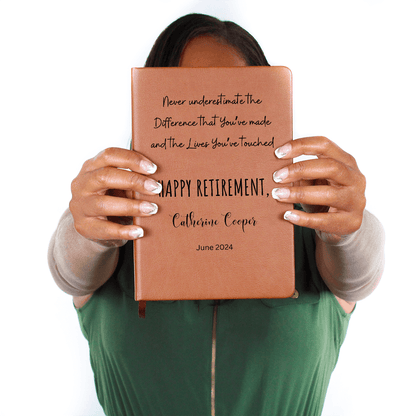 Never underestimate the
Difference that You've made
and the Lives You've Touched
HAPPY RETIREMENT,
Catherine Cooper
June 2024